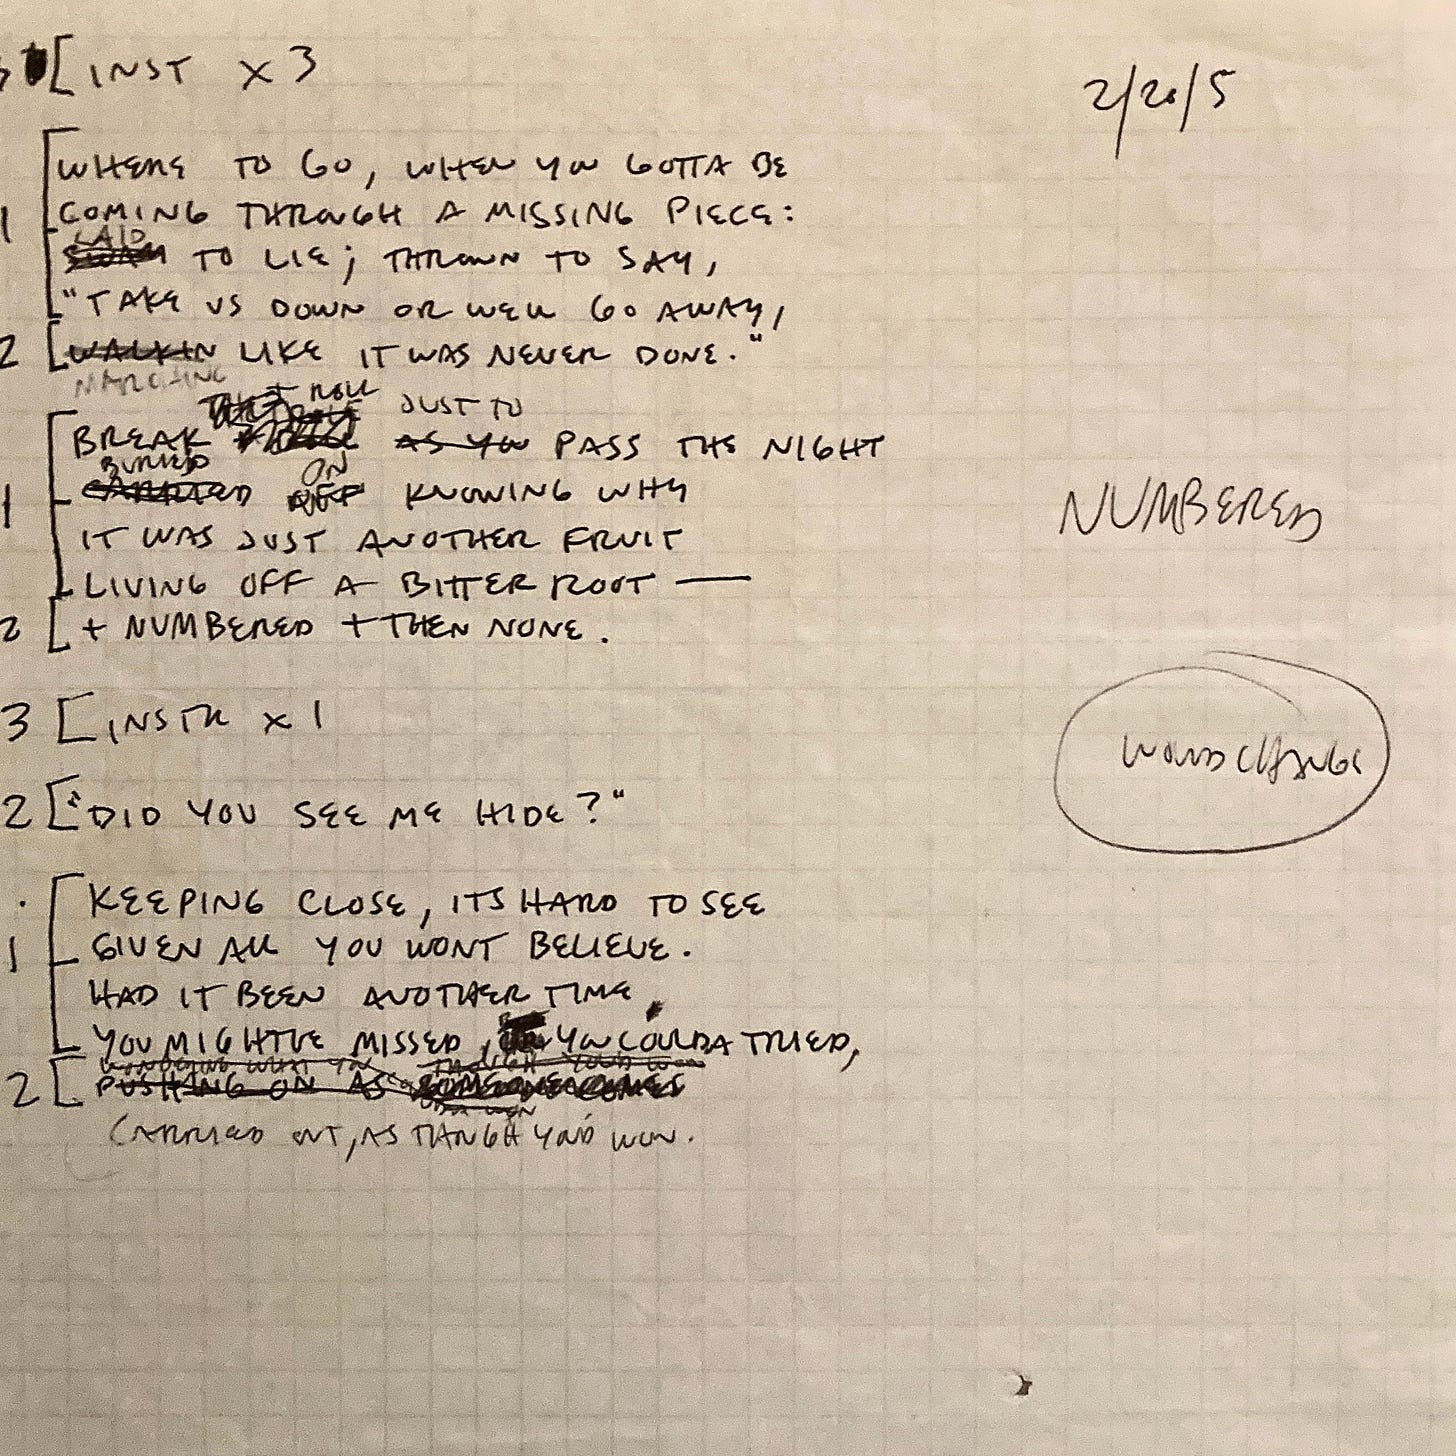 3 [INST x 3
2/20/5
WHERE TO GO, WHEN YOU GOTTA BE
1 COMING THROUGH A MISSING PIECE:
LAID
TO LIE; THROWN TO SAY,
"TAKE US DOWN OR WELL GO AWAY,
2 [WALKIN LIKE IT WAS NEVER DONE."
MARCHING
ROLL JUST TO
BREAK AS YOU PASS THE NIGHT
BURIED ON
1 CARRIED OFF KNOWING WHY
NUMBERED
IT WAS JUST ANOTHER FRUIT
LIVING OFF A BITTER ROOT —
2 [+ NUMBERED + THEN NONE.
3 [INSTR x 1
WORD CHANGE
2 ["DID YOU SEE ME HIDE?"
KEEPING CLOSE, ITS HARD TO SEE
1 GIVEN ALL YOU WONT BELIEVE.
HAD IT BEEN ANOTHER TIME,
YOU MIGHTVE MISSED, YOU COULDA TRIED,
WONDERING WHAT YOU THOUGH YOUD WON
2 [PUSHING ON AS SOMEONE COMES
CARRIED OUT, AS THOUGH YOU'D WON.